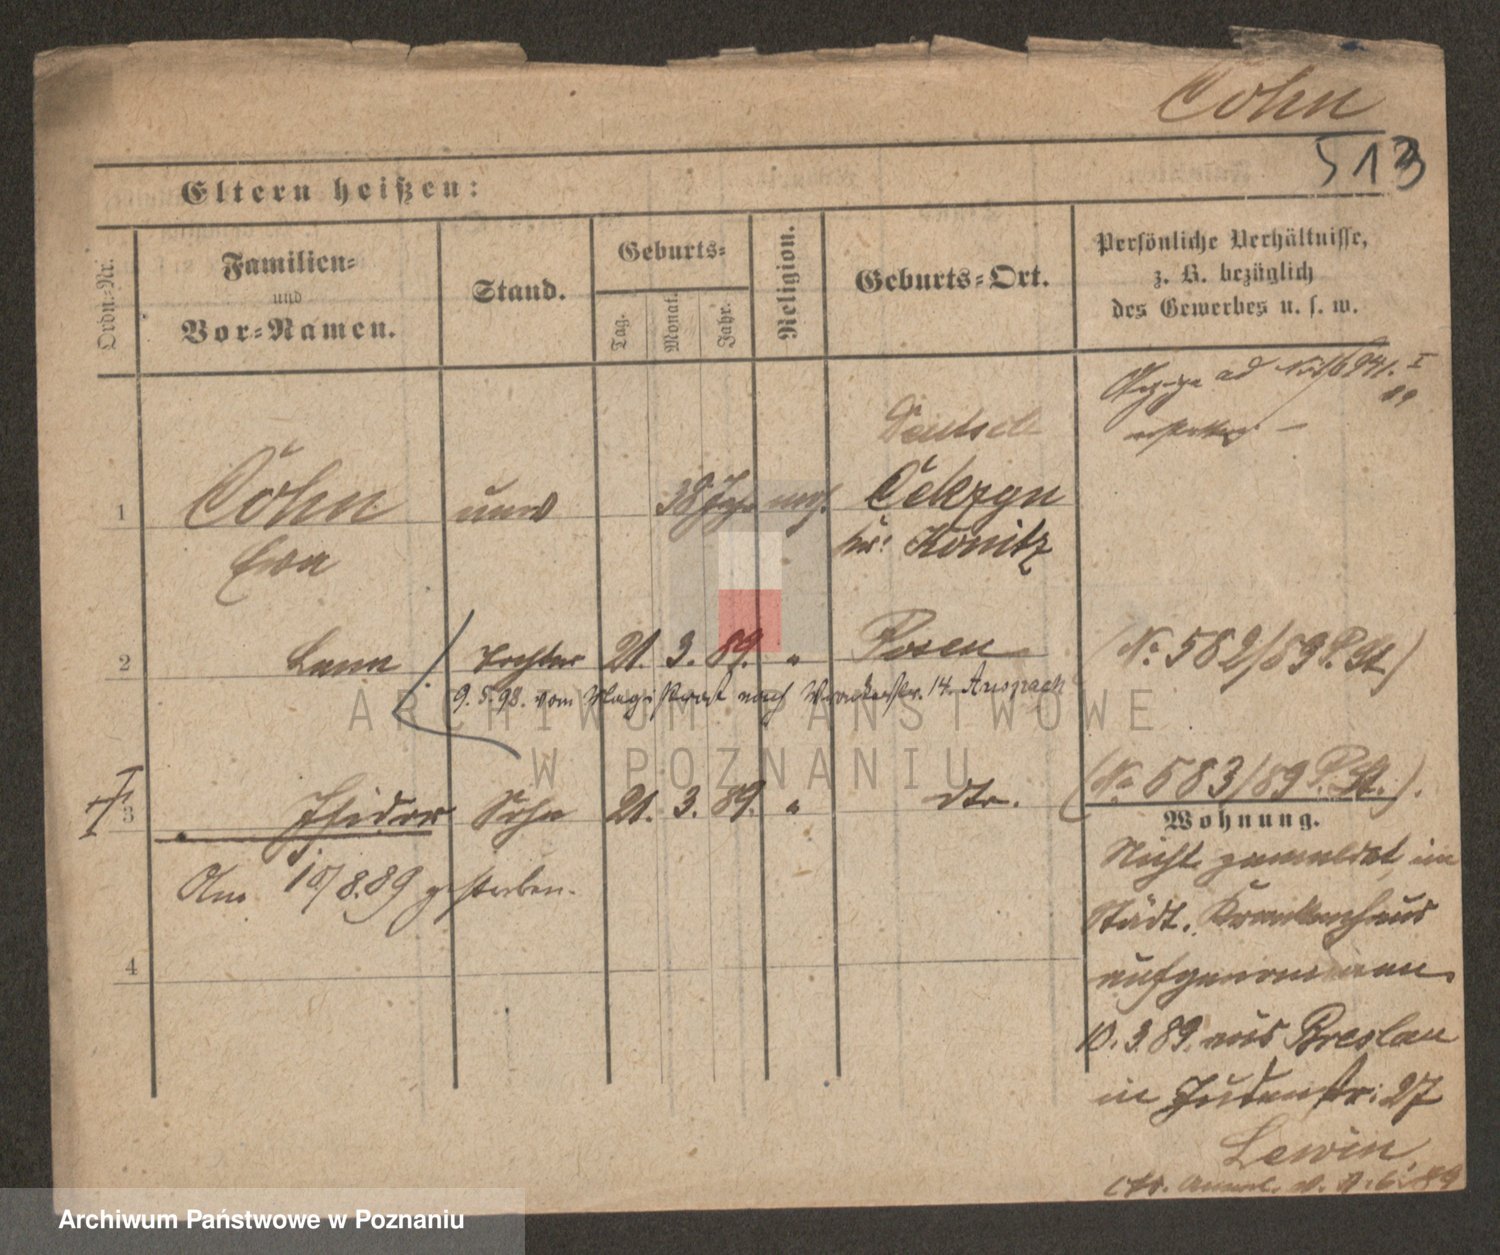 Cohn
513
Eltern heißen:
Ordn.-Nr.
Familien-
und
Vor-Namen.
Stand.
Geburts-
Tag.
Monat.
Jahr.
Religion.
Geburts-Ort.
Persönliche Verhältnisse,
z. B. bezüglich
des Gewerbes u. s. w.
ad
Deutsch
1 Cohn unv 38 Jahr mos. Cekzyn
Ewa kr: Konitz
2 Lana Tochter 21. 3. 89. " Posen (No. 582/89 P. St.)
9. 5. 98. vom Magistrat nach Wronkerstr. 14. Anspach
3 Isidor Sohn 21. 3. 89. " dto. (No 583/89 P. St.).
Am 10/8.89 gestorben.
4
Wohnung.
Nicht gemeldet, im
Städt. Krankenhaus
aufgenommen
10. 3. 89. aus Breslau
in Judenstr. 27
Lewin
ARCHIWUM PAŃSTWOWE
W POZNANIU
Archiwum Państwowe w Poznaniu